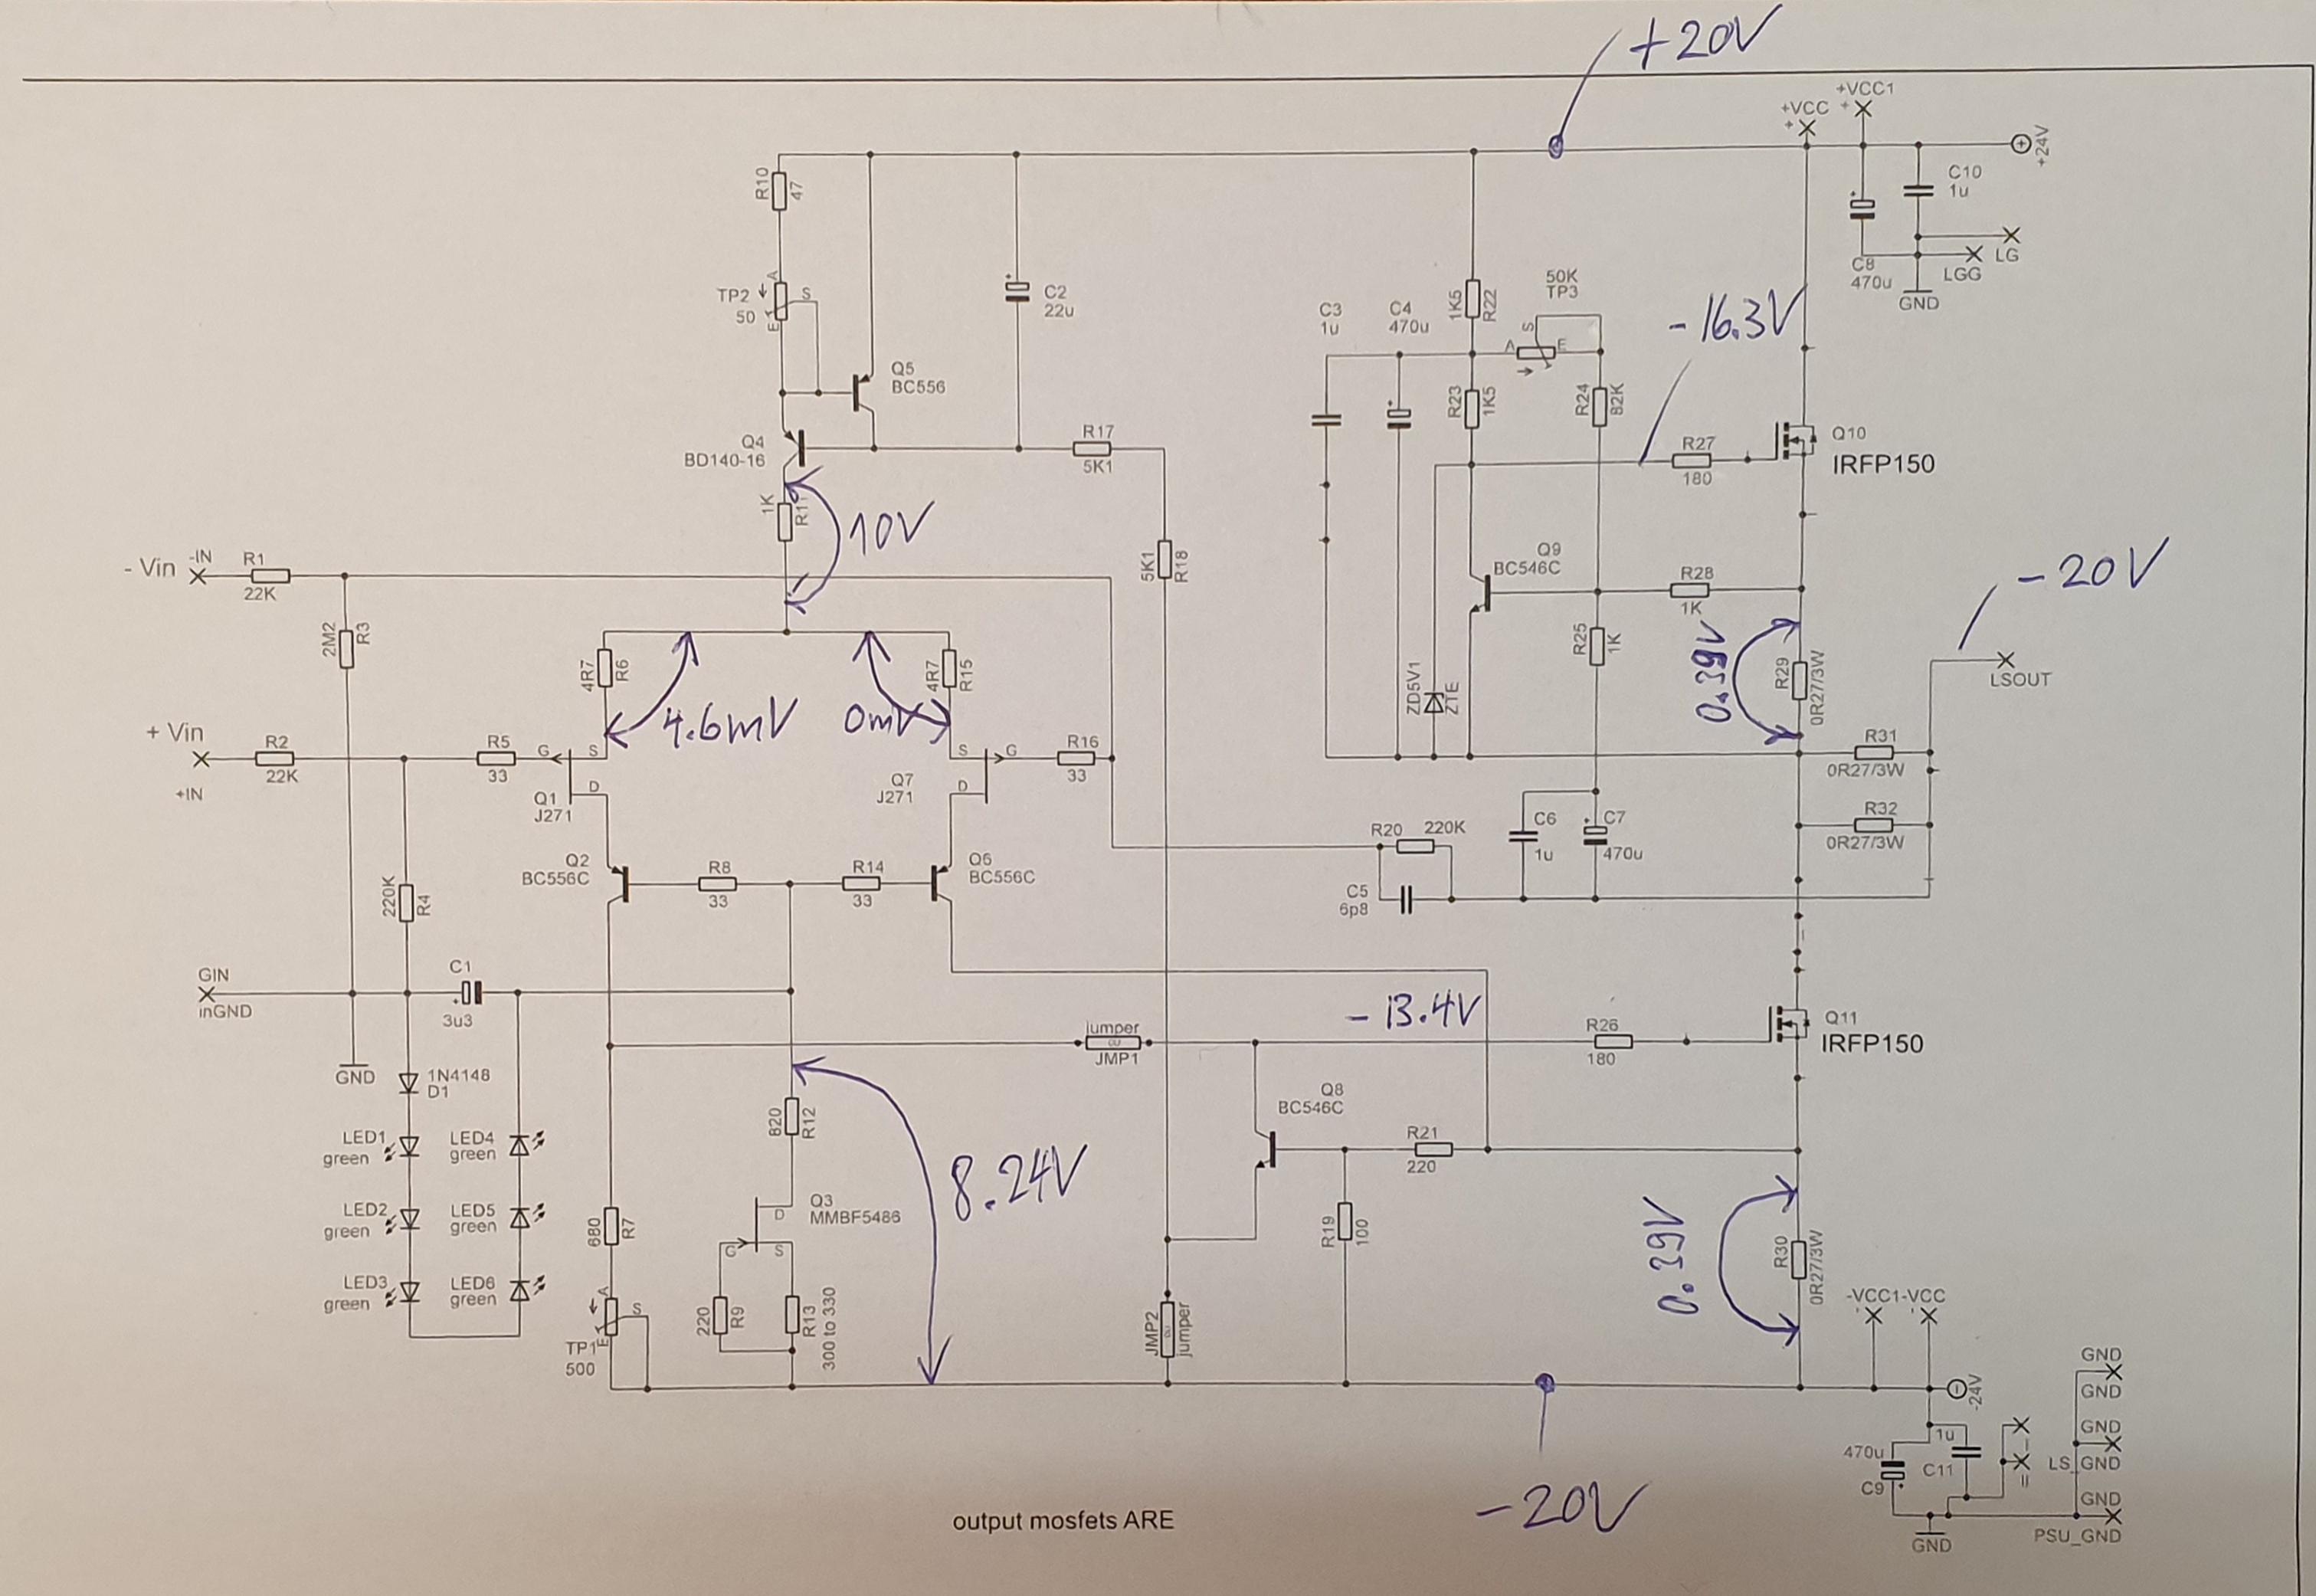 +20V
+VCC1
+
+VCC
+
+24V
R10
47
C10
1u
LG
LGG
C8
470u
GND
TP2
50
A
S
E
C2
22u
1K5
R22
50K
TP3
S
A
E
C3
1u
C4
470u
-16.3V
Q5
BC556
R23
1K5
R24
82K
Q4
BD140-16
R17
5K1
R27
180
Q10
IRFP150
1K
R11
10V
- Vin
-IN
R1
22K
5K1
R18
Q9
BC546C
R28
1K
-20V
2M2
R3
4R7
R6
4R7
R15
R25
1K
0.39V
R29
0R27/3W
LSOUT
ZD5V1
ZTE
4.6mV
0mV
+ Vin
+IN
R2
22K
R5
33
G
S
D
Q1
J271
S
G
D
Q7
J271
R16
33
R31
0R27/3W
R32
0R27/3W
R20
220K
C6
1u
C7
470u
C5
6p8
Q2
BC556C
R8
33
R14
33
Q6
BC556C
220K
R4
GIN
inGND
C1
3u3
-13.4V
jumper
JMP1
R26
180
Q11
IRFP150
GND
1N4148
D1
820
R12
Q8
BC546C
LED1
green
LED4
green
R21
220
8.24V
LED2
green
LED5
green
680
R7
Q3
MMBF5486
D
G
S
R19
100
0.39V
R30
0R27/3W
LED3
green
LED6
green
A
S
E
TP1
500
220
R9
R13
300 to 330
JMP2
jumper
-VCC1
-VCC
-24V
GND
GND
GND
LS_GND
GND
PSU_GND
470u
C9
1u
C11
GND
-20V
output mosfets ARE